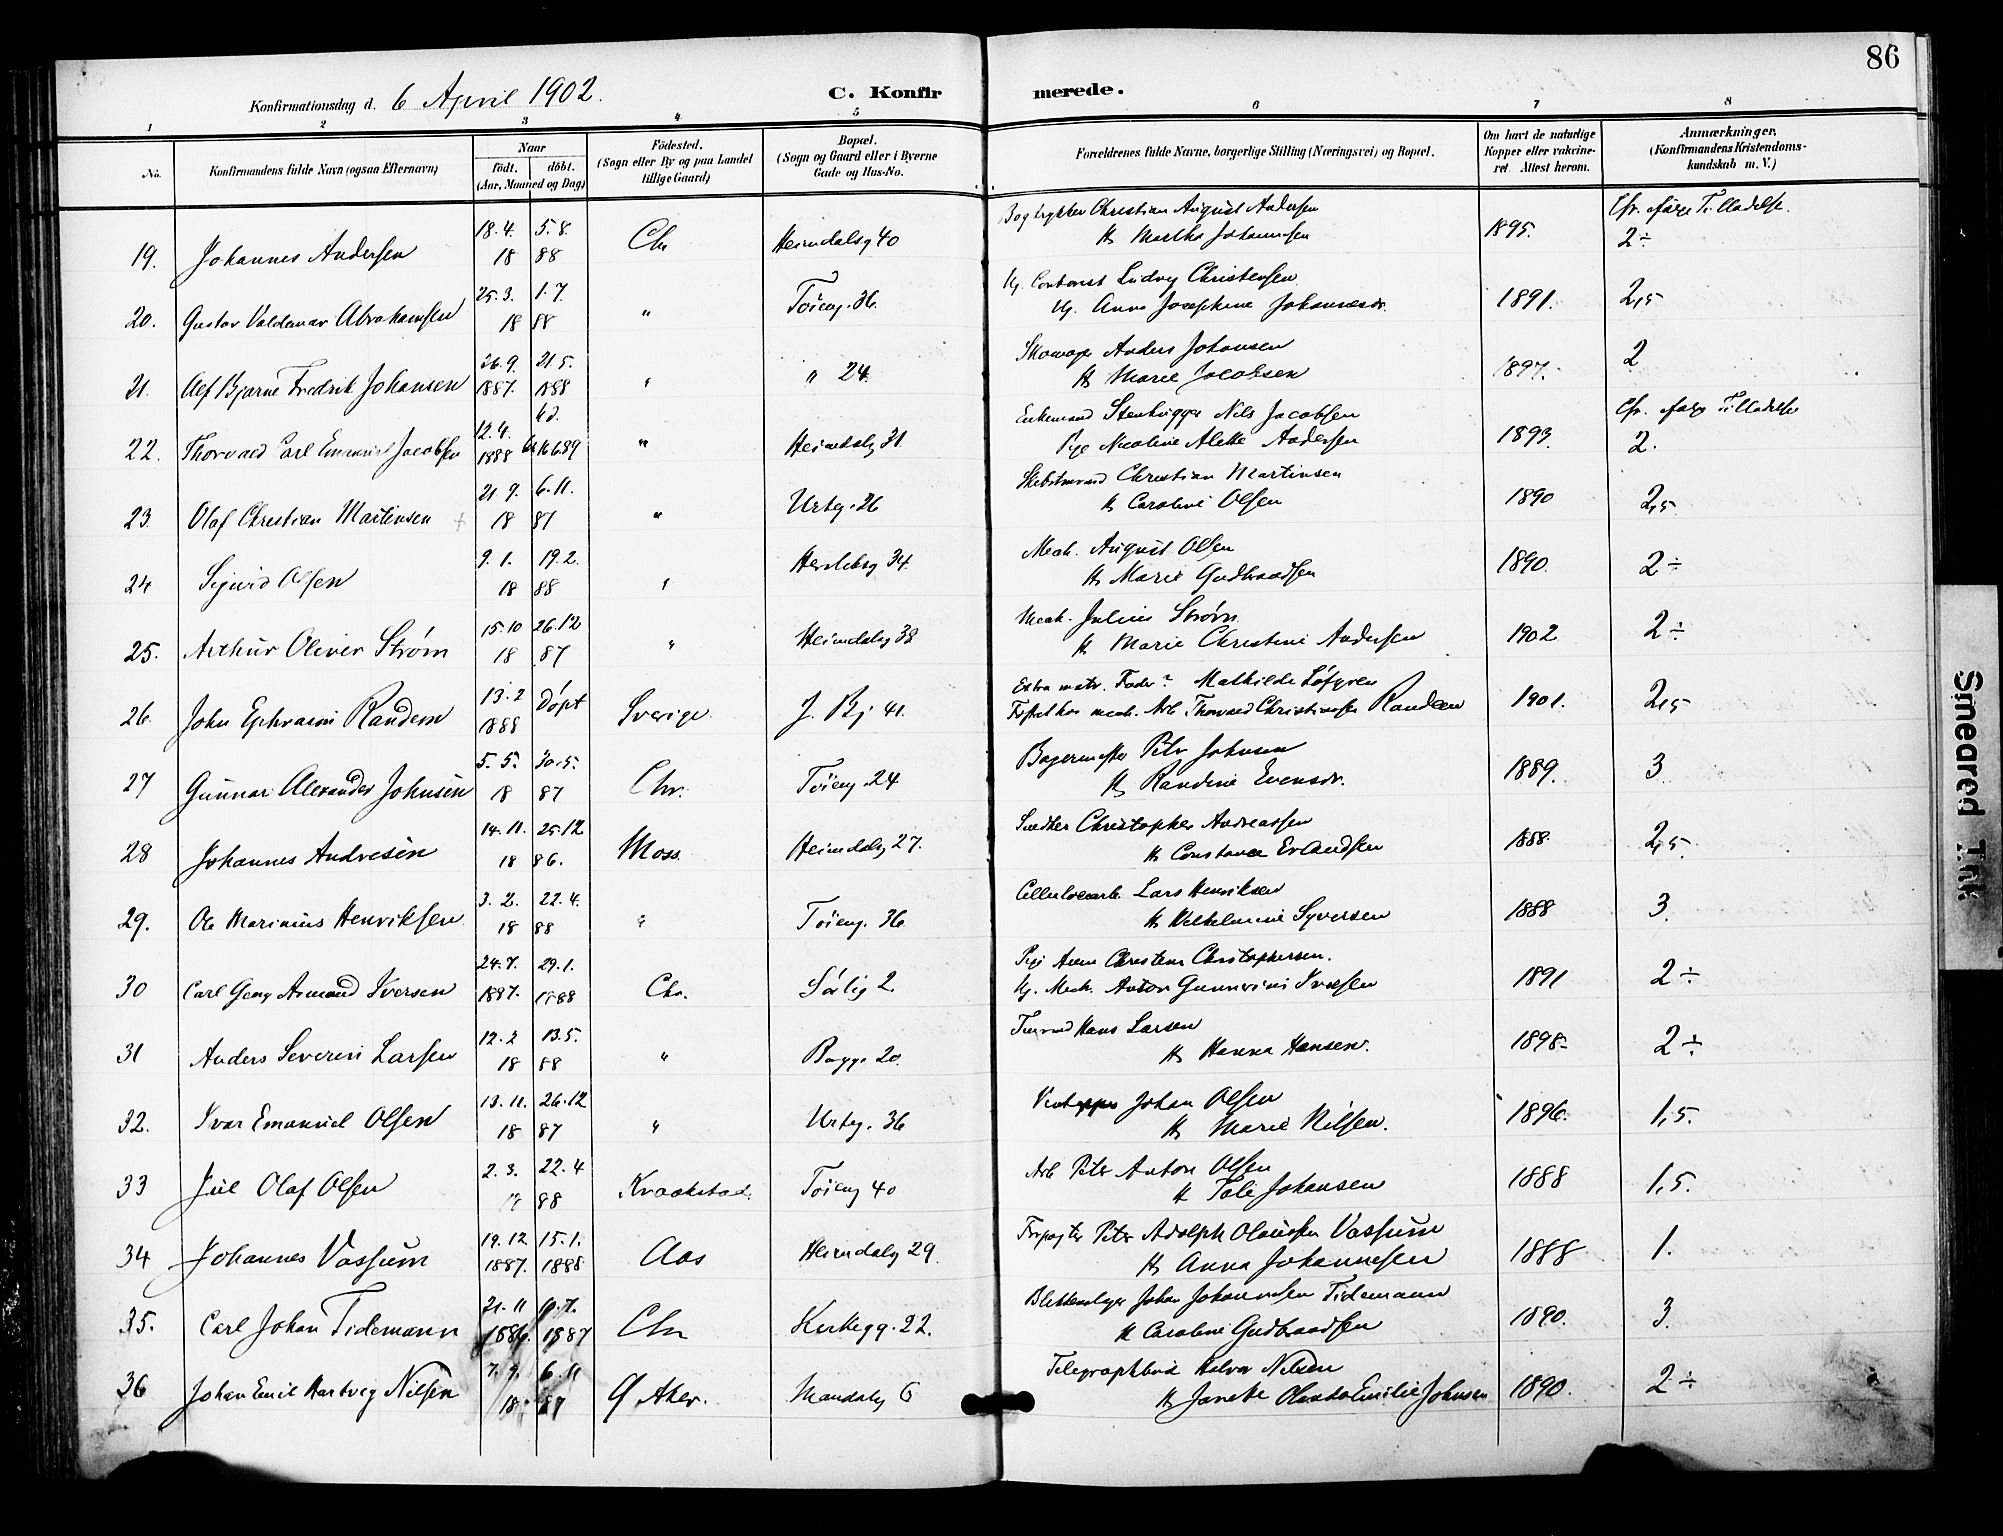 86
Konfirmationsdag d. 6 April 1902.
C. Konfir merede.
1 2 3 4 5 6 7 8
No.
Konfirmandens fulde Navn (ogsaa Efternavn)
Naar
født. døbt.
(Aar, Maaned og Dag)
Fødested.
(Sogn eller By og paa Landet
tillige Gaard)
Bopæl.
(Sogn og Gaard eller i Byerne
Gade og Hus-No.
Forældrenes fulde Navne, borgerlige Stilling (Næringsvei) og Bopæl.
Om havt de naturlige
Kopper eller vakcine-
ret Attest herom.
Anmærkninger,
(Konfirmandens Kristendoms-
kundskab m. V.)
18.4. 5.8. Bogtrykker Christian August Andersen Tilladelse.
19. Johannes Andersen 18 88 Chr Heimdalsg 40 H. Martha Johannesen 1895. 2÷
25.3. 1.7. Ug. Contorist Ludvig Christensen
20. Gustav Valdemar Abrahamsen 18 88 " Tøieng. 36 Ug. Anna Josephine Johannesdr. 1891. 2,5
26.9. 21.5. Skomager Anders Johansen
21. Alf Bjarne Fredrik Johansen 1887. 1888 " " 24. H. Marie Jacobsen 1897. 2
12.4. Enkemand Stenhugger Nils Jacobsen Tilladelse
22. Thorvald Carl Emanuel Jacobsen 1888 " Heimdalsg 31 Pige Nicoline Alette Andersen 1893. 2.
21 9. 6.11. Christian Martinsen
23. Olaf Christian Martinsen + 18 87 " Urteg. 26 H. Caroline Olsen 1890 2,5
9.1. 19.2. Mech. August Olsen
24 Sigurd Olsen 18 88 " Herslebsg 34. H. Marie Gudbrandsen 1890. 2÷
15.10 26.12 Mech. Julius Strøm
25. Arthur Oliver Strøm 18 87 " Heimdalsg 38 H. Marie Christine Andersen 1902 2÷
13.2 Døpt Extra matr. Fader? Mathilde Løfgren
26. John Ephraim Randem 1888 Sverige J. Bj 41. mech. Arb Thorvald Christiansen Randem 1901. 2,5
5.5. 30.5. Bagermester Peter Johnsen
27 Gunnar Alexander Johnsen 18 87 Chr. Tøieng. 24 H. Randine Evensdr. 1889. 3
14.11. 25.12 Snedker Christopher Andreassen
28 Johannes Andresen 18 86. Moss. Heimdalsg 27. H. Constance Erlandsen 1888 2,5.
3.2. 22.4. Cellulosearb. Lars Henriksen
29. Ole Marinius Henriksen 18 88 " Tøieng. 36 H. Wilhelmine Syversen 1888 3.
24.7. 29.1. Pige Anna Christine Christophersen.
30 Carl Georg Armand Iversen 1887. 1888 Chr. Sørlig 2. Ug. Mech. Anton Gunnerius Iversen 1891 2÷
12.2 13.5. Hans Larsen
31 Anders Severin Larsen 18 88 " Bagg. 20. H. Hanna Hansen. 1898. 2÷
13.11. 26.12 Johan Olsen
32. Ivar Emanuel Olsen 18 87 " Urteg. 36 H. Marie Nilsen. 1896. 1,5.
2.3. 22.4 Arb Peter Anton Olsen
33 Jul Olaf Olsen 18 88 Kraakstad. Tøieng 40 H Tale Johansen 1888 1,5.
19.12 15.1. Peter Adolph Olaussen Vassum
34 Johannes Vassum 1887. 1888 Aas Heimdalsg 29. H. Anna Johannesen 1888 1.
21.11 Blikkenslager Johan Johannesen Tidemann
35. Carl Johan Tidemann 1886. 1887 Chr Kirkegg. 22. H Caroline Gudbrandsen 1890. 3.
7.9. 6.11 Telegraphbud Halvor Nilsen
36 Johan Emil Hartvig Nilsen 18 87 Ø Aker. Mandalsg 6 H. Janette Emilie Johnsen 1890. 2÷
Smeared Ink